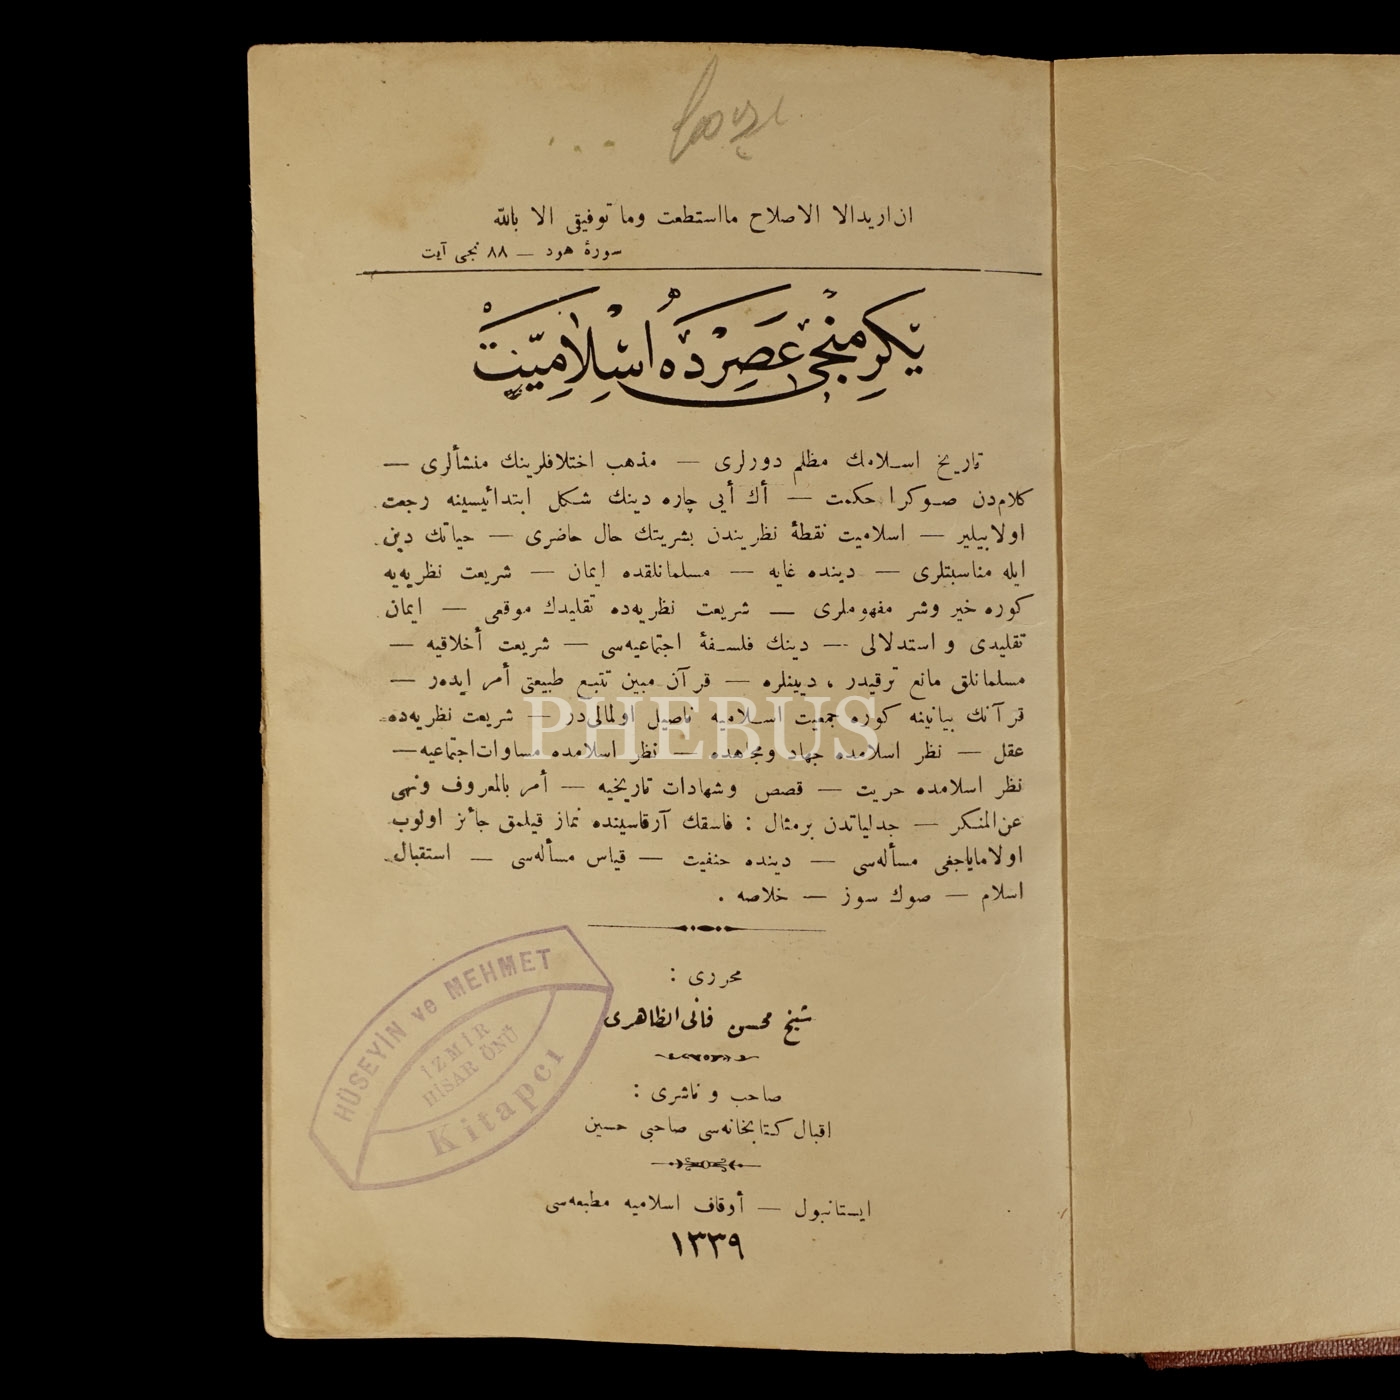 ان اريد الا الاصلاح مااستطعت وما توفيقى الا بالله
سورهٔ هود — ٨٨ نجى آيت
يَكِرمنجى عَصِرْدَه اسْلاميّت
تاريخ اسلامك مظلم دورلرى — مذهب اختلافلرينك منشألرى —
كلام‌دن صوكرا حكمت — أك أيى چاره دينك شكل ابتدائيسينه رجعت
اولابيلير — اسلاميت نقطهٔ نظريندن بشريتك حال حاضرى — حياتك دين
ايله مناسبتلرى — دينده غايه — مسلمانلقده ايمان — شريعت نظريه‌يه
كوره خير وشر مفهوملرى — شريعت نظريه‌ده تقليدك موقعى — ايمان
تقليدى و استدلالى — دينك فلسفهٔ اجتماعيه‌سى — شريعت أخلاقيه —
مسلمانلق مانع ترقيدر ، ديينلره — قرآن مبين تتبع طبيعتى أمر ايده‌ر —
قرآنك بيانينه كوره جمعيت اسلاميه ناصيل اولمالى‌در — شريعت نظريه‌ده
عقل — نظر اسلامده جهاد ومجاهده — نظر اسلامده مساوات اجتماعيه —
نظر اسلامده حريت — قصص وشهادات تاريخيه — أمر بالمعروف ونهى
عن‌المنكر — جدلياتدن برمثال : فاسقك آرقاسينده نماز قيلمق جائز اولوب
اولاماياجغى مسأله‌سى — دينده حنفيت — قياس مسأله‌سى — استقبال
اسلام — صوك سوز — خلاصه .
محررى :
شيخ محسن فانى الظاهرى
صاحب و ناشرى :
اقبال كتابخانه‌سى صاحبى حسين
ايستانبول — أوقاف اسلاميه مطبعه‌سى
١٣٣٩
HÜSEYİN ve MEHMET
İZMİR
HİSAR ÖNÜ
Kitapcı
PHEBUS